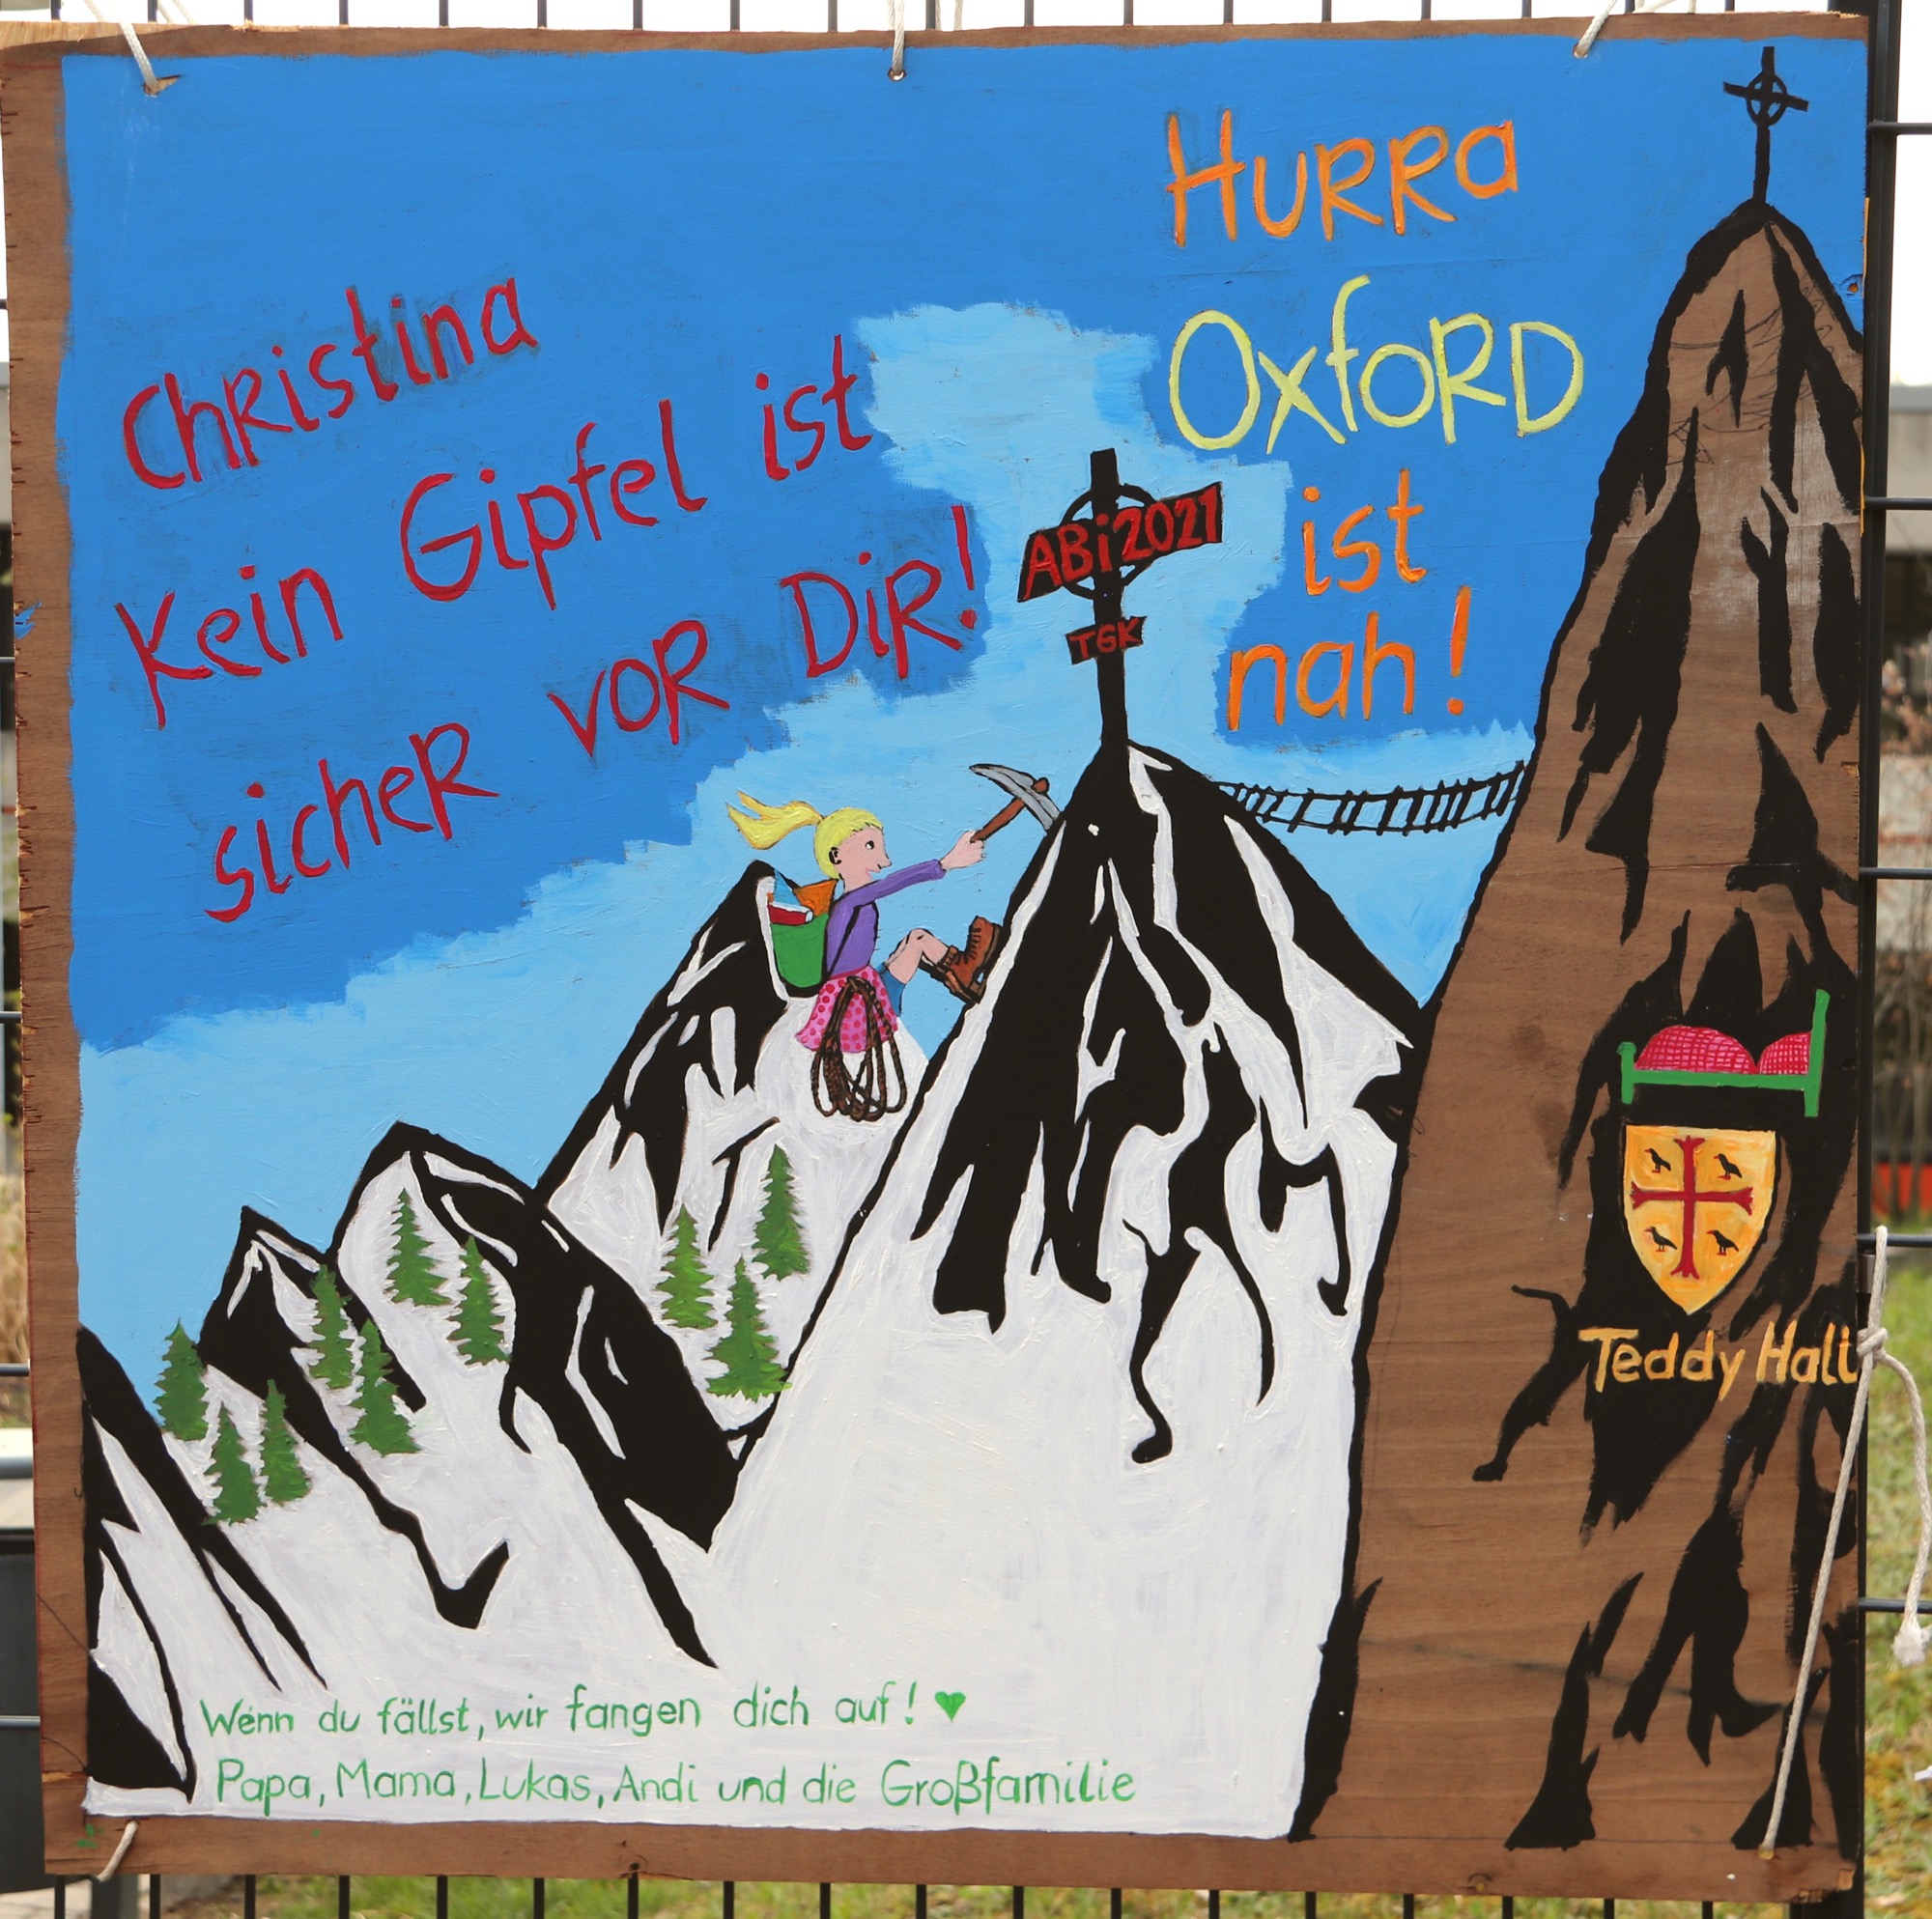 Christina
Kein Gipfel ist
sicher vor Dir!
Hurra
Oxford
ist
nah!
ABi 2021
TGK
Teddy Hall
Wenn du fällst, wir fangen dich auf! ♥
Papa, Mama, Lukas, Andi und die Großfamilie